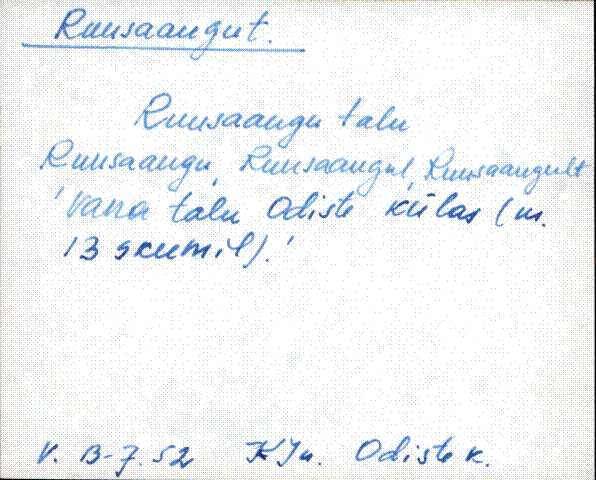 Ruusaangut.
Ruusaangu talu
Ruusaangu, Ruusaangul, Ruusaangult
'Vana talu Odiste külas (m.
13 skeemil).'
V. B-7.52 KJn. Odiste k.